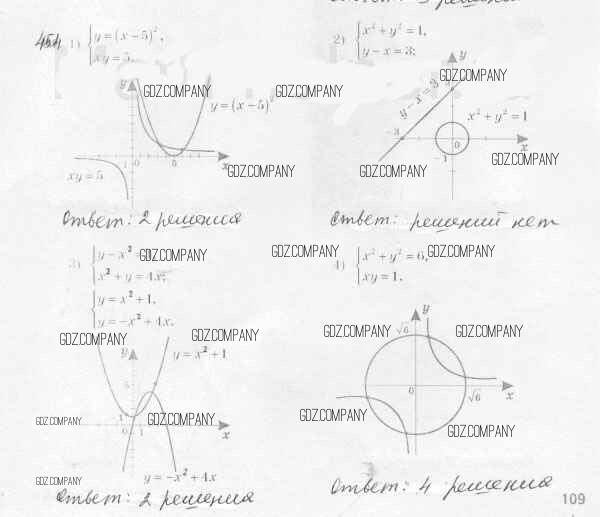 454
1) { y = (x − 5)²,
xy = 5.
y
GDZ.COMPANY
GDZ.COMPANY
y = (x − 5)²
xy = 5
0
5
x
GDZ.COMPANY
Ответ: 2 решения
2) { x² + y² = 1,
y − x = 3;
y
GDZ.COMPANY
y − x = 3
3
x² + y² = 1
−3
0
x
−1
GDZ.COMPANY
GDZ.COMPANY
Ответ: решений нет
3) { y − x²
GDZ.COMPANY
x² + y = 4x;
{ y = x² + 1,
y = −x² + 4x.
GDZ.COMPANY
GDZ.COMPANY
y
y = x² + 1
5
1
0
1
x
GDZ.COMPANY
GDZ.COMPANY
GDZ.COMPANY
y = −x² + 4x
Ответ: 2 решения
GDZ.COMPANY
4) { x² + y² = 6,
GDZ.COMPANY
xy = 1.
y
GDZ.COMPANY
√6
GDZ.COMPANY
0
√6
x
GDZ.COMPANY
GDZ.COMPANY
Ответ: 4 решения
109